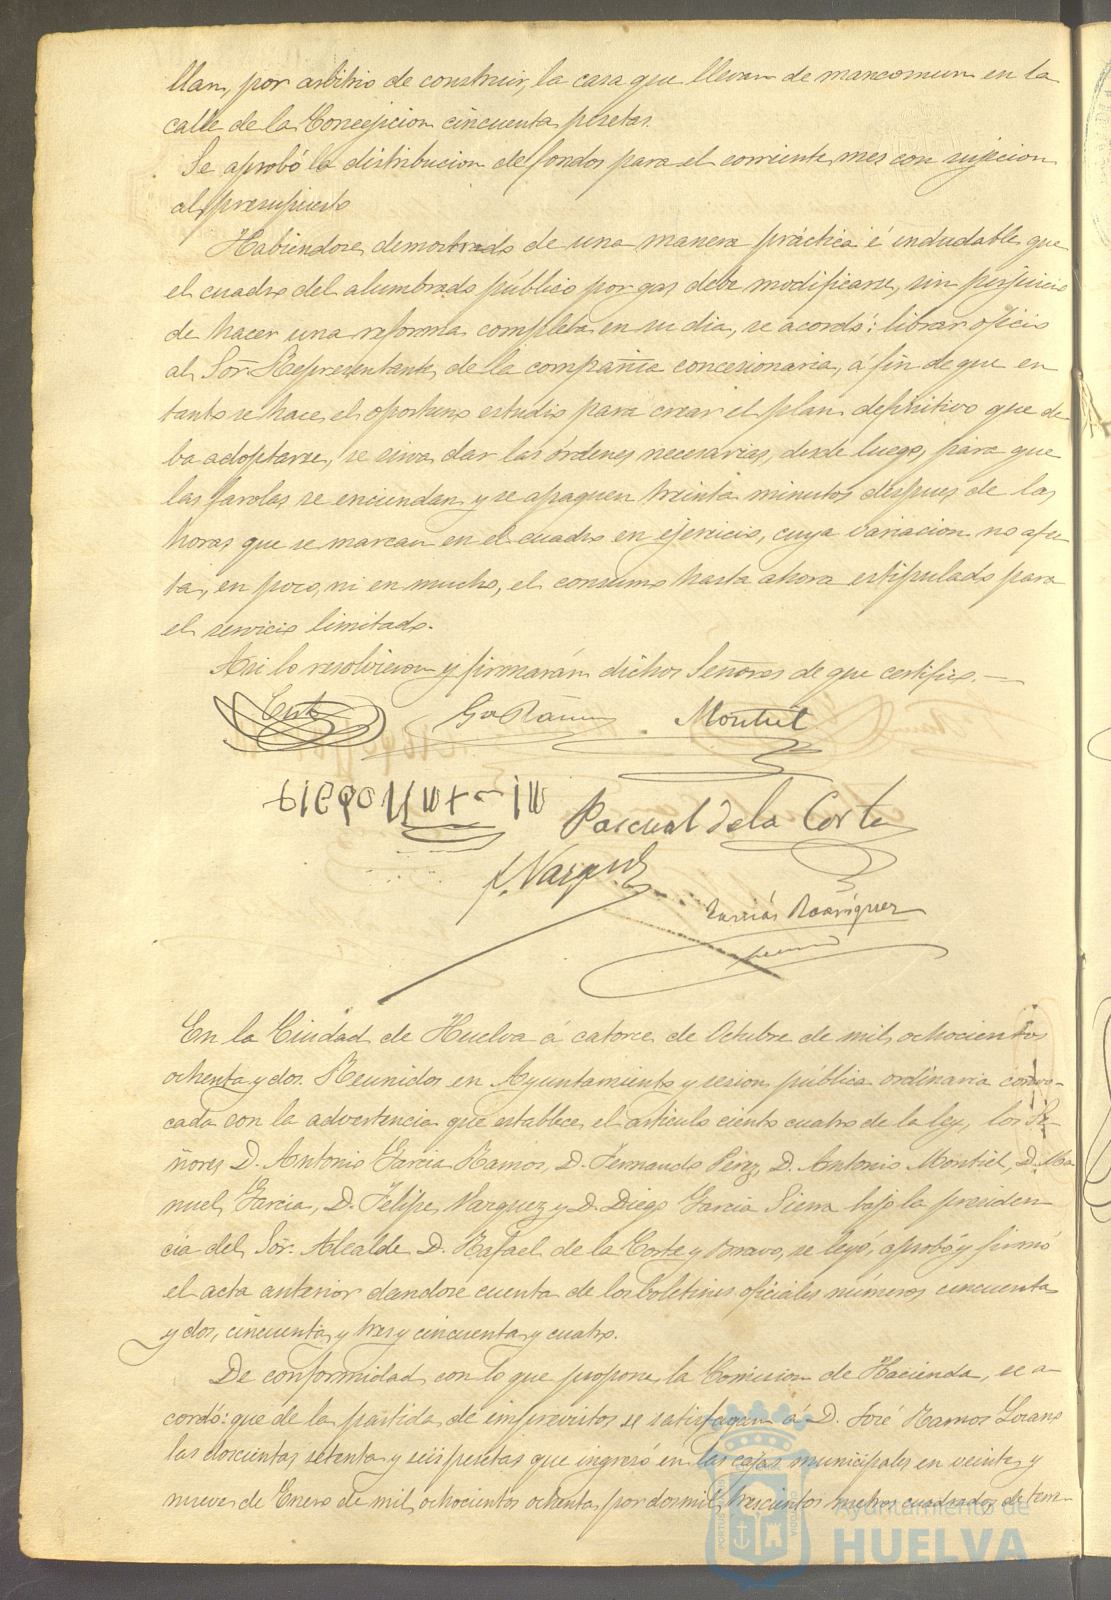 llan, por arbitrio de construir, la casa que llevan de mancomun en la
calle de la Concepcion cincuenta pesetas.
Se aprobó la distribucion de fondos para el corriente mes con sujecion
al presupuesto
Habiendose demostrado de una manera práctica é indudable que
el cuadro del alumbrado público por gas debe modificarse, sin perjuicio
de hacer una reforma completa en su dia, se acordó: librar oficio
al Sor. Representante de la compañia concesionaria, á fin de que en
tanto se hace el oportuno estudio para crear el plan definitivo que de-
ba adoptarse, se sirva dar las órdenes necesarias, desde luego, para que
las farolas se enciendan y se apaguen treinta minutos despues de las
horas que se marcan en el cuadro en ejercicio, cuya variacion no afec-
ta, en poco, ni en mucho, el consumo hasta ahora estipulado para
el servicio limitado.
Asi lo resolvieron y firmarán dichos Señores de que certifico.
Corte Ga Ramos Montiel
Pascual de la Corte
F. Vazquez
Rodriguez
En la Ciudad de Huelva á catorce de Octubre de mil ochocientos
ochenta y dos. Reunidos en Ayuntamiento y sesion pública ordinaria convo-
cada con la advertencia que establece el articulo ciento cuatro de la ley, los Se-
ñores D. Antonio Garcia Ramos, D. Fernando Perez, D. Antonio Montiel, D. Ma
nuel Garcia, D. Felipe Vazquez y D. Diego Garcia Sierra bajo la presiden
cia del Sor. Alcalde D. Rafael de la Corte y Bravo, se leyó, aprobó y firmó
el acta anterior dandose cuenta de los boletines oficiales números cincuenta
y dos, cincuenta y tres y cincuenta y cuatro.
De conformidad con lo que propone la Comision de Hacienda, se a
cordó: que de la partida de imprevistos se satisfagan á D. José Ramos Lozano
las doscientas setenta y seis pesetas que ingresó en las cajas municipales en veinte y
nueve de Enero de mil ochocientos ochenta por dos mil trescientos metros cuadrados de terre-
Ayuntamiento de
HUELVA